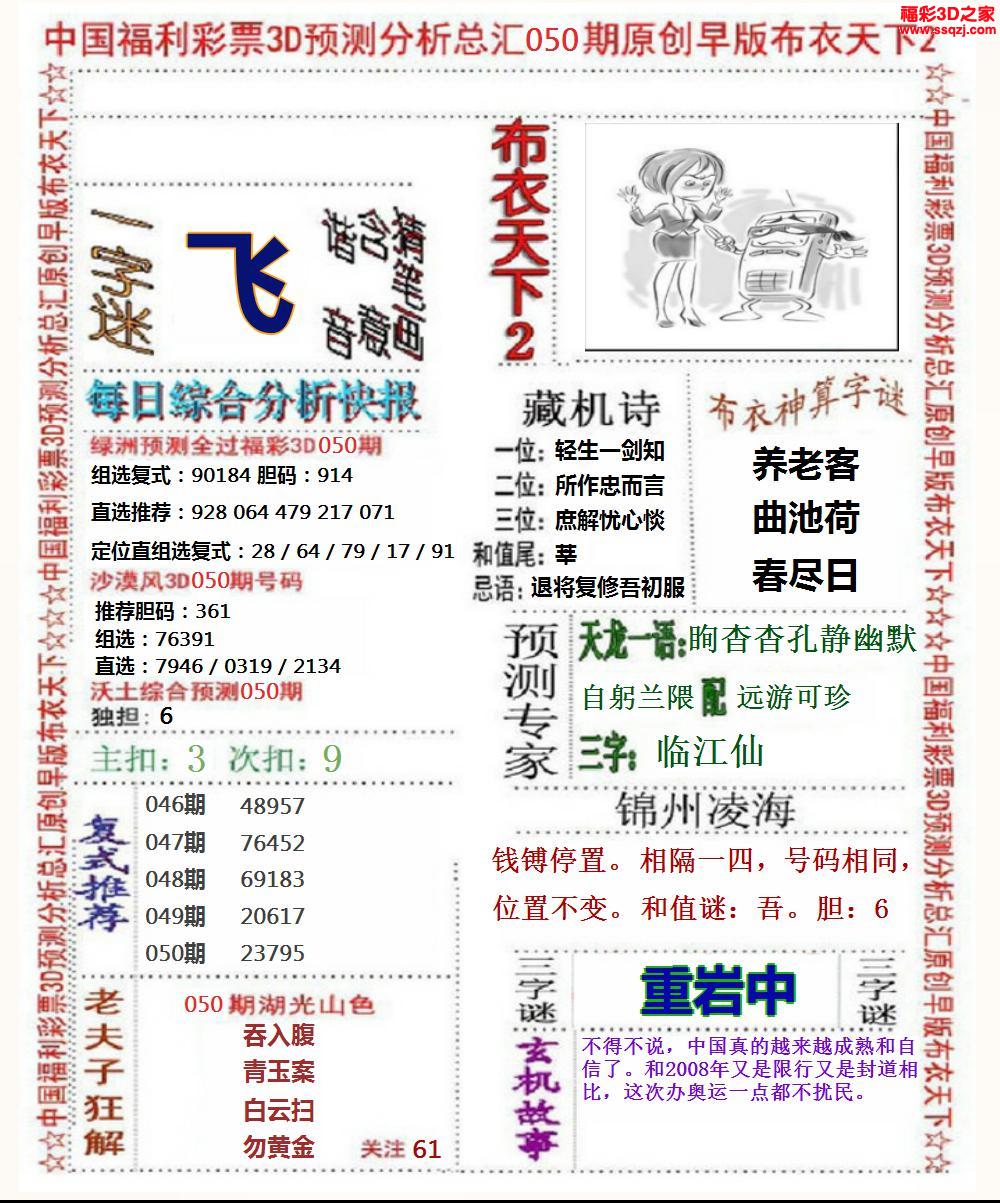 福彩3D之家
www.ssqzj.com
中国福利彩票3D预测分析总汇050期原创早版布衣天下2
☆☆中国福利彩票3D预测分析总汇原创早版布衣天下☆☆中国福利彩票3D预测分析总汇原创早版布衣天下☆☆
一字迷
飞
布衣天下2
每日综合分析快报
绿洲预测全过福彩3D050期
组选复式：90184 胆码：914
直选推荐：928 064 479 217 071
定位直组选复式：28 / 64 / 79 / 17 / 91
沙漠风3D050期号码
推荐胆码：361
组选：76391
直选：7946 / 0319 / 2134
沃土综合预测050期
独担：6
主扣：3 次扣：9
复式推荐
046期 48957
047期 76452
048期 69183
049期 20617
050期 23795
老夫子狂解
050期湖光山色
吞入腹
青玉案
白云扫
勿黄金
关注 61
藏机诗
一位：轻生一剑知
二位：所作忠而言
三位：庶解忧心惔
和值尾：莘
忌语：退将复修吾初服
布衣神算字谜
养老客
曲池荷
春尽日
预测专家
天龙一语：眴杳杳孔静幽默
自躬兰隈 配 远游可珍
三字：临江仙
锦州凌海
钱镈停置。相隔一四，号码相同，
位置不变。和值谜：吾。胆：6
三字谜
重岩中
三字谜
玄机故事
不得不说，中国真的越来越成熟和自
信了。和2008年又是限行又是封道相
比，这次办奥运一点都不扰民。
☆☆中国福利彩票3D预测分析总汇原创早版布衣天下☆☆☆☆中国福利彩票3D预测分析总汇原创早版布衣天下☆☆